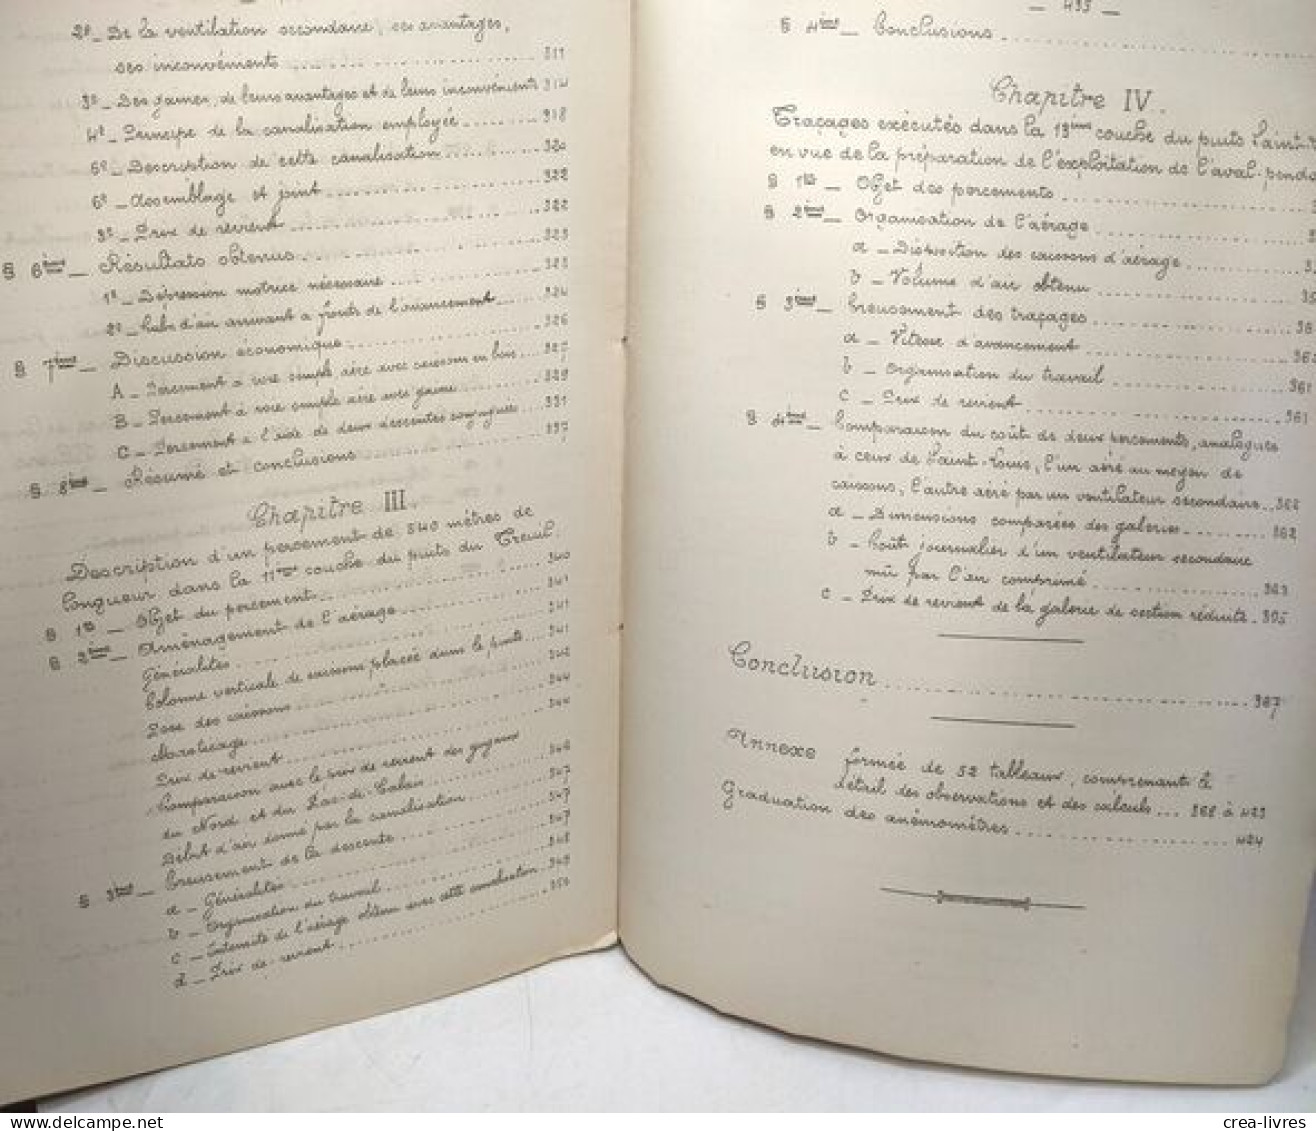 2º_ De la ventilation secondaire, ses avantages,
ses inconvénients 311
3º_ Des gaines, de leurs avantages et de leurs inconvénients 314
4º_ Principe de la canalisation employée 318
5º_ Description de cette canalisation 320
6º_ Assemblage et joint 322
7º_ Prix de revient 322
§ 6ème_ Résultats obtenus 323
1º_ Dépression motrice nécessaire 323
2º_ Cube d'air arrivant à fronts de l'avancement 324
§ 7ème_ Discussion économique 326
A_ Percement à voie simple, aéré avec caissons en bois 327
B_ Percement à voie simple aéré avec gaine 329
C_ Percement à l'aide de deux descentes conjuguées 331
§ 8ème_ Résumé et conclusions 337
Chapitre III.
Description d'un percement de 540 mètres de
longueur dans la 11ème couche du puits du Treuil.
§ 1er_ Objet du percement 340
§ 2ème_ Aménagement de l'aérage 341
Généralités 341
Colonne verticale de caissons placée dans le puits 341
Pose des caissons 342
Masticage 344
Prix de revient 344
Comparaison avec le prix de revient des guyaux
du Nord et du Pas-de-Calais 346
Débit d'air donné par la canalisation 347
§ 3ème_ Creusement de la descente 347
a_ Généralités 347
b_ Organisation du travail 348
c_ Intensité de l'aérage obtenu avec cette canalisation 349
d_ Prix de revient 350
_ 433 _
§ 4ème_ Conclusions
Chapitre IV.
Traçages exécutés dans la 13ème couche du puits Saint-
en vue de la préparation de l'exploitation de l'aval-penda
§ 1er_ Objet des percements
§ 2ème_ Organisation de l'aérage
a_ Disposition des caissons d'aérage
b_ Volume d'air obtenu
§ 3ème_ Creusement des traçages
a_ Vitesse d'avancement
b_ Organisation du travail 361
c_ Prix de revient 361
§ 4ème_ Comparaison du coût de deux percements, analogues
à ceux de Saint-Louis, l'un aéré au moyen de
caissons, l'autre aéré par un ventilateur secondaire 362
a_ Dimensions comparées des galeries 362
b_ Coût journalier d'un ventilateur secondaire
mû par l'air comprimé 363
c_ Prix de revient de la galerie de section réduite 365
Conclusion 367
Annexe formée de 52 tableaux, comprenant le
détail des observations et des calculs 368 à 423
Graduation des anémomètres 424
crea-livres